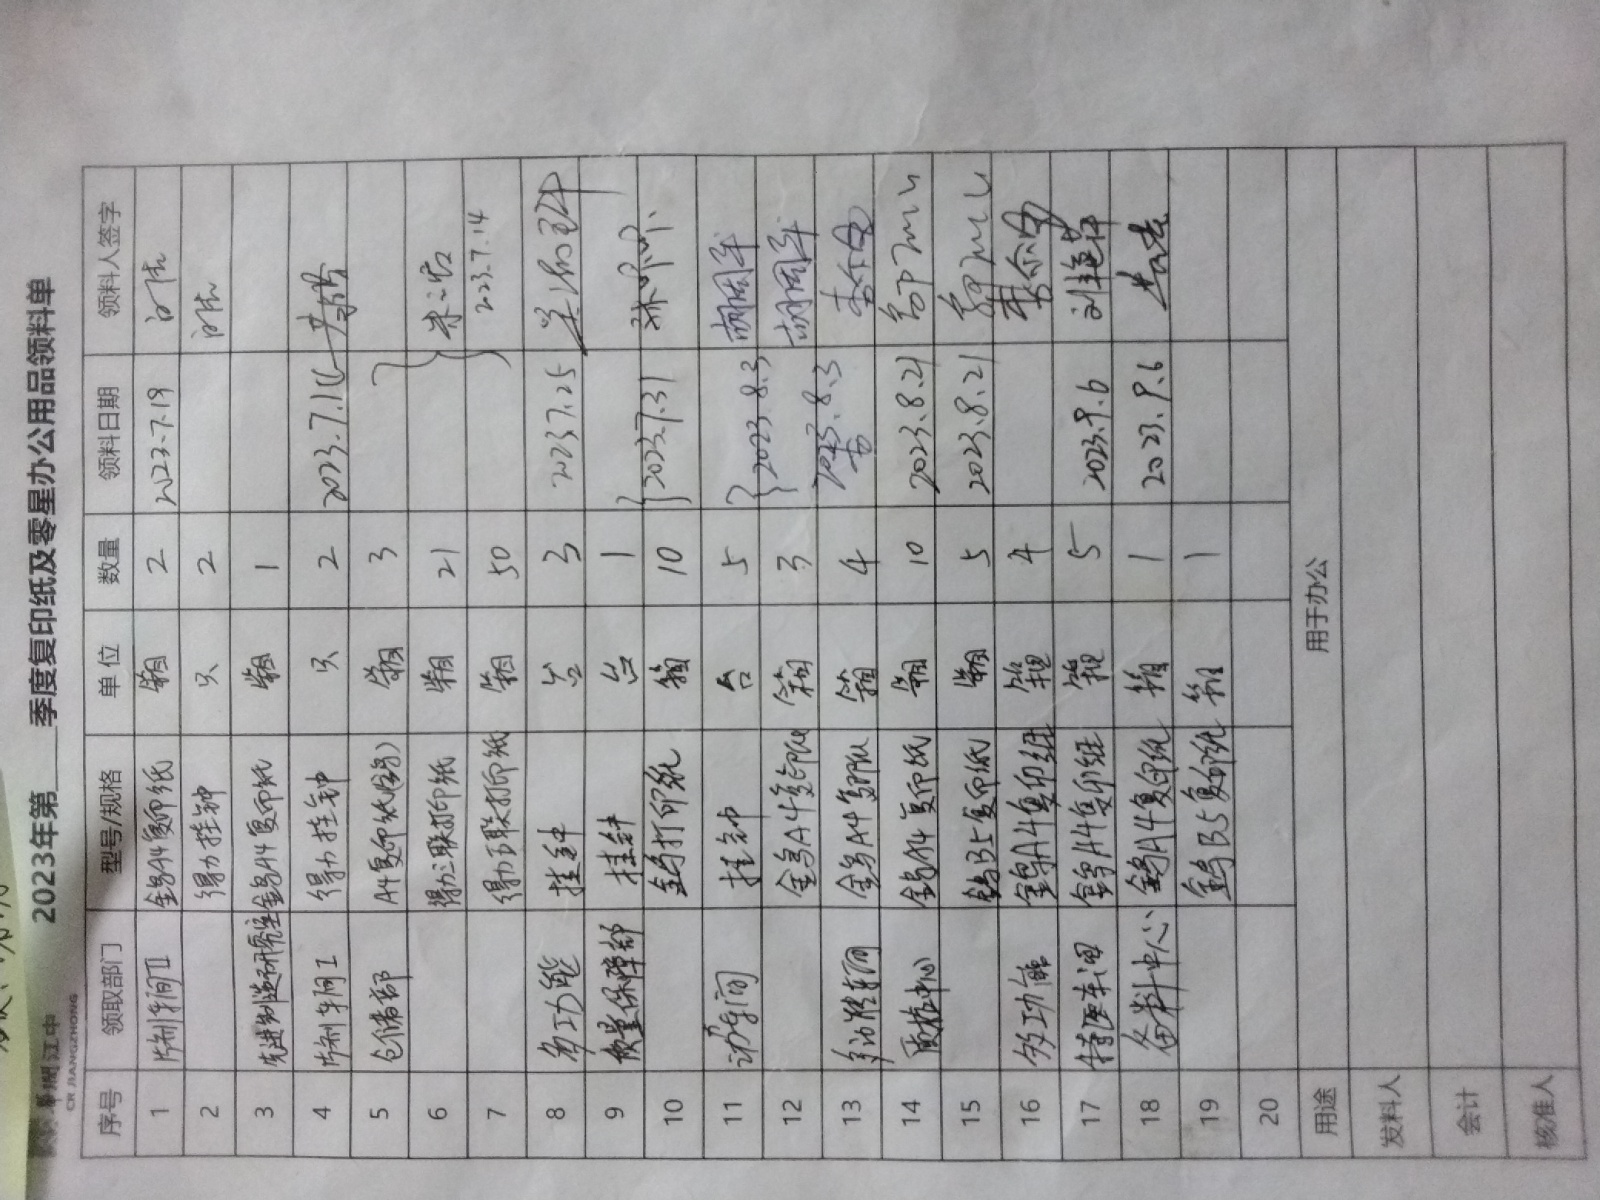 華潤江中
CR JIANGZHONG
2023年第 季度复印纸及零星办公用品领料单
序号 领取部门 型号/规格 单位 数量 领料日期 领料人签字
1 片剂车间II 金鸟A4复印纸 箱 2 2023.7.19
2 得力挂钟 只 2
3 先进制造研究 金鸟A4复印纸 箱 1
4 片剂车间I 得力挂钟 只 2 2023.7.14
5 仓储部 A4复印纸 箱 3
6 得力三联打印纸 箱 21
7 得力三联打印纸 箱 50 2023.7.14
8 多功能 挂钟 台 3 2023.7.25
9 质量保障部 挂钟 台 1
10 金鸟打印纸 箱 10 2023.7.31
11 动车间 挂钟 台 5 2023.8.3 胡周军
12 金鸟A4复印纸 箱 3 2023.8.3 胡周军
13 车间 金鸟A4复印纸 箱 4
14 质检中心 金鸟A4复印纸 箱 10 2023.8.21
15 金鸟B5复印纸 箱 5 2023.8.21
16 多功能 金鸟A4复印纸 箱 4
17 特医车间 金鸟A4复印纸 箱 5 2023.9.6
18 备料中心 金鸟A4复印纸 箱 1 2023.9.6
19 金鸟B5复印纸 箱 1
20
用途 用于办公
发料人
会计
核准人